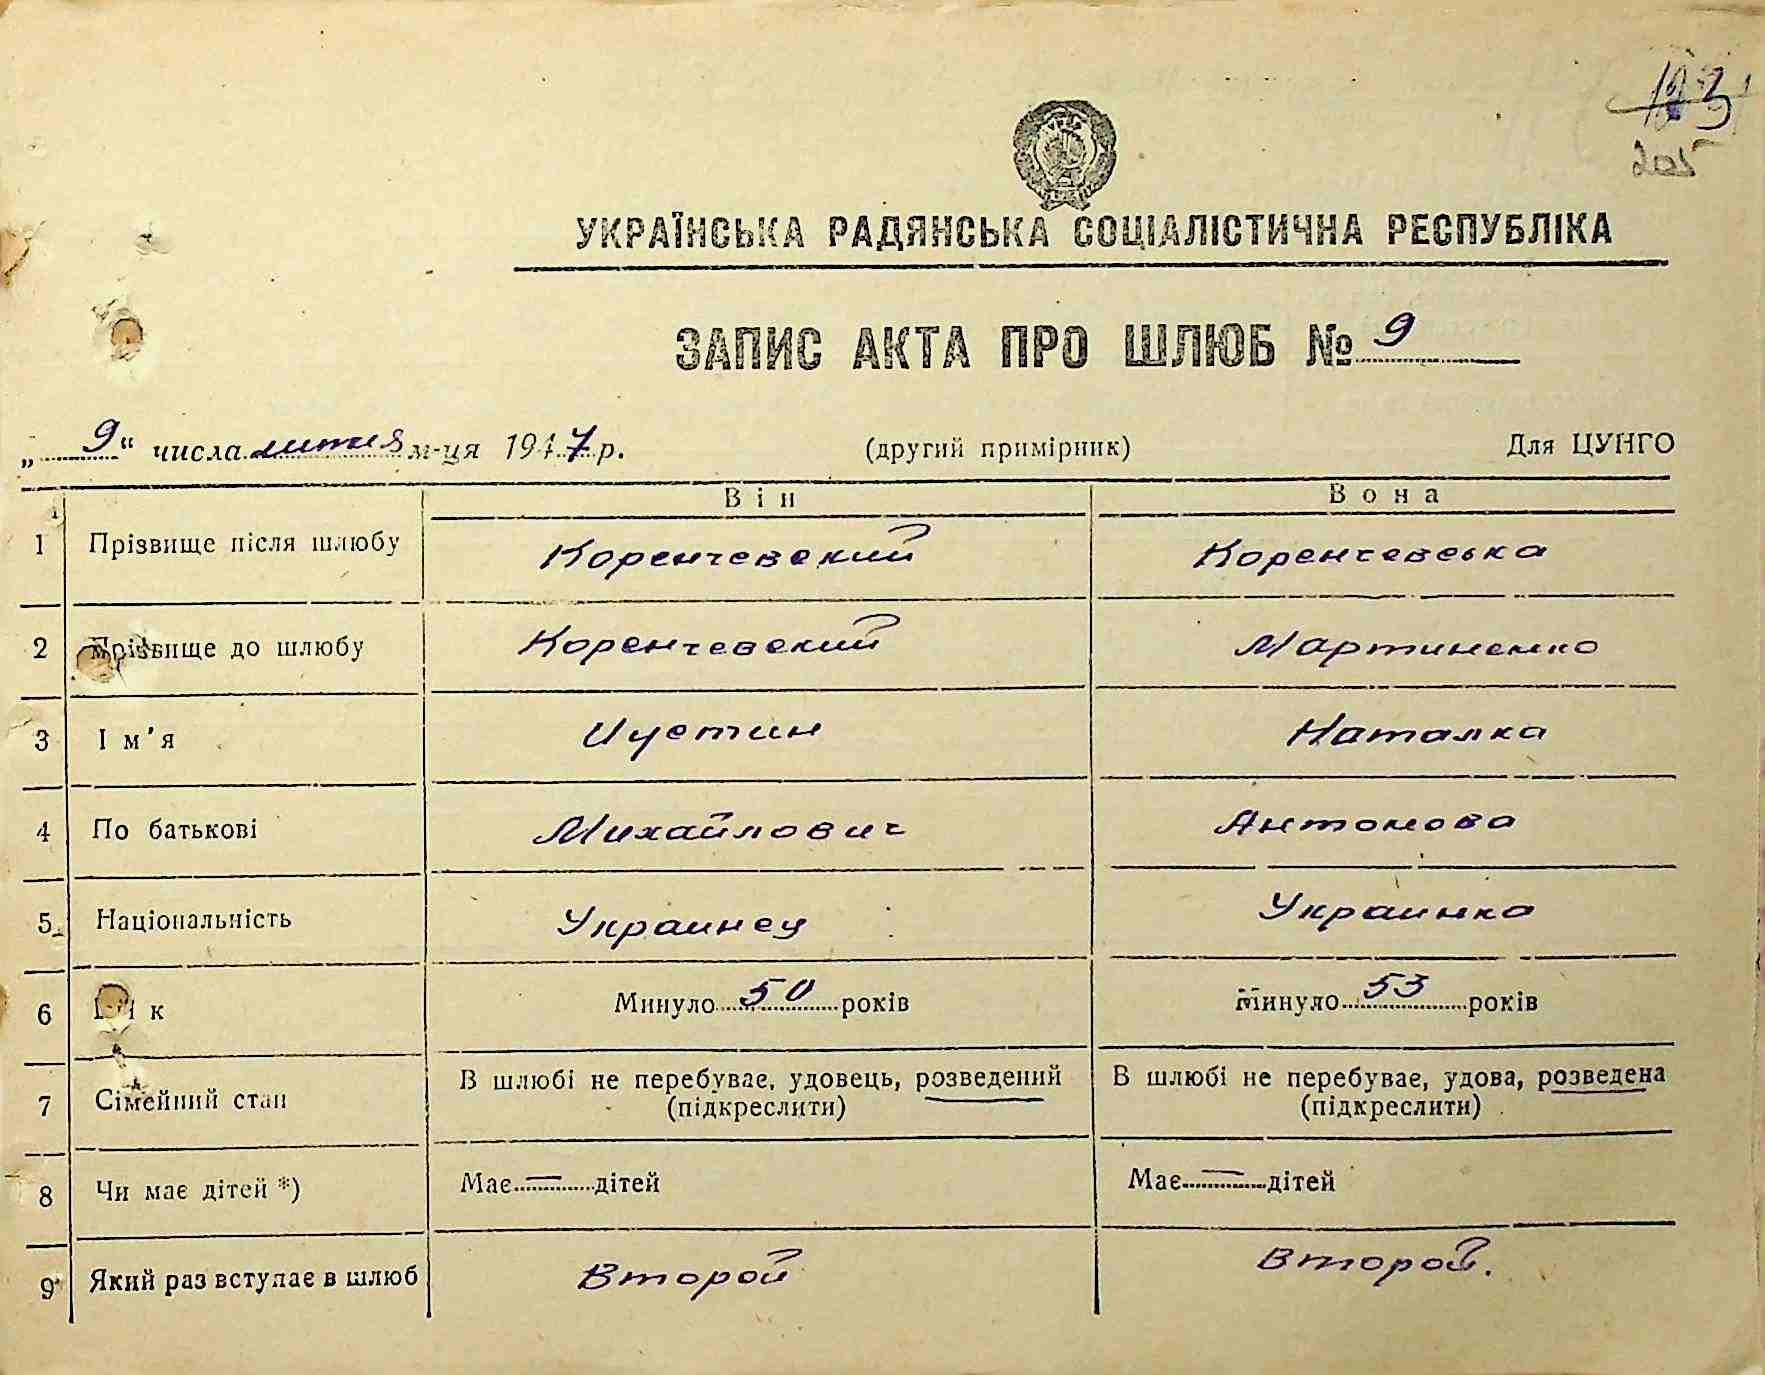 193
205
УКРАЇНСЬКА РАДЯНСЬКА СОЦІАЛІСТИЧНА РЕСПУБЛІКА
ЗАПИС АКТА ПРО ШЛЮБ № 9
„9“ числа м-ця 1947 р. (другий примірник) Для ЦУНГО
Він Вона
1 Прізвище після шлюбу Коренчевский Коренчевська
2 Прізвище до шлюбу Коренчевский Мартиненко
3 Ім'я Иустин Наталка
4 По батькові Михайлович Антонова
5 Національність Украинец Украинка
6 Вік Минуло 50 років Минуло 53 років
7 Сімейний стан В шлюбі не перебуває, удовець, розведений В шлюбі не перебуває, удова, розведена
(підкреслити) (підкреслити)
8 Чи має дітей *) Має — дітей Має — дітей
9 Який раз вступає в шлюб Второй Второй.